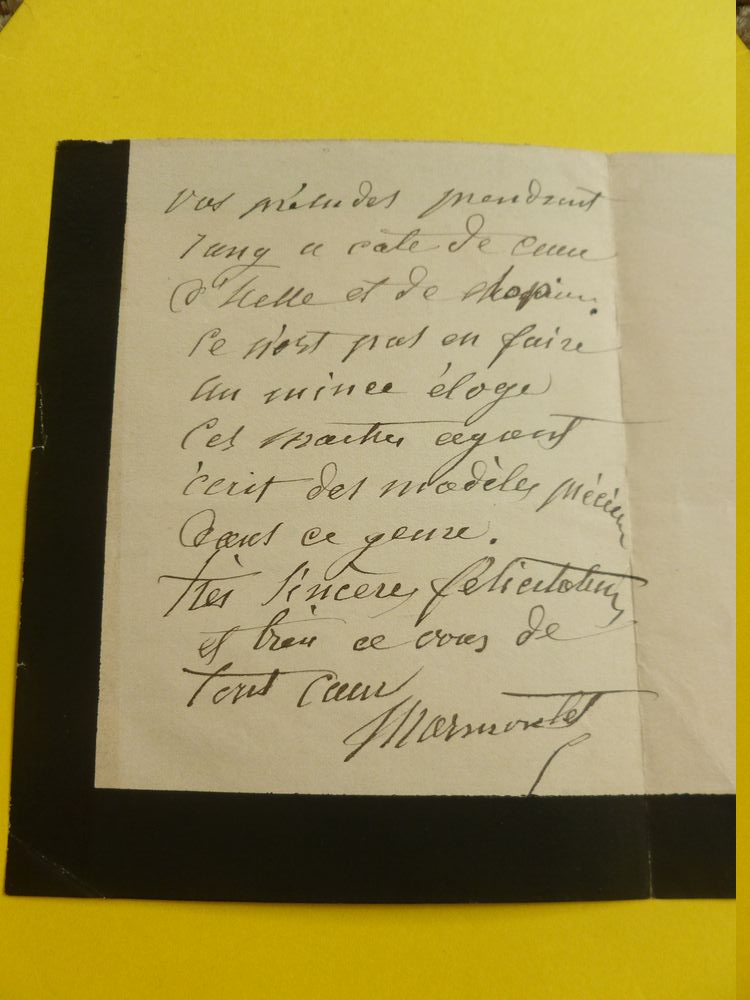 vos préludes prendront
rang a coté de ceux
d'Helle et de Chopin.
Ce n'est pas en faire
un mince éloge
Ces maitres ayant
écrit des modèles précieux
dans ce genre.
Très sincères félicitations
et bien a vous de
tout cœur
Marmontel